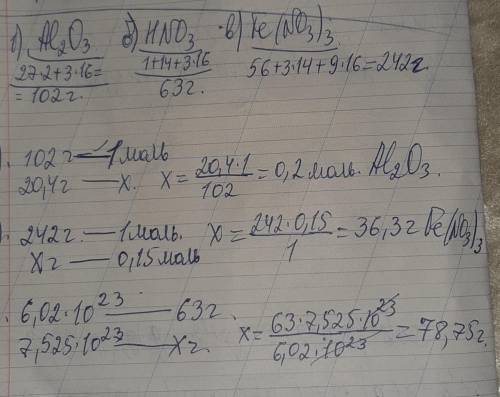 1). Al₂O₃ б) HNO₃ в) Fe(NO₃)₃
27·2+3·16= 1+14+3·16 56+3·14+9·16=242г.
=102г. 63г.
102г — 1моль
20,4г — X. X = 20,4·1 / 102 = 0,2 моль. Al₂O₃.
242г. — 1моль. X = 242·0,15 / 1 = 36,3г Fe(NO₃)₃
Xг — 0,15моль
6,02·10²³ — 63г.
7,525·10²³ — Xг. X = 63·7,525·10²³ / 6,02·10²³ = 78,75г.